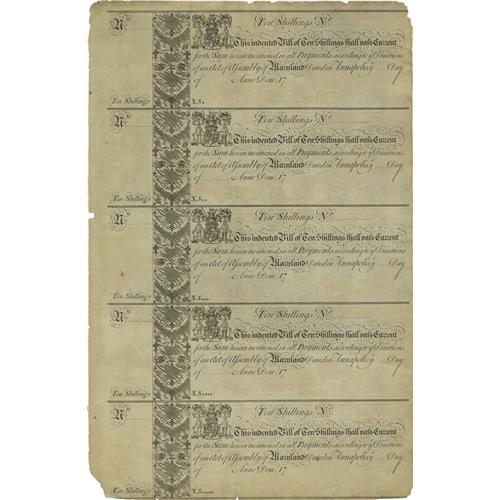 No Ten Shillings No
This indented Bill of Ten Shillings shall pass Current
for the Sum herein mentioned in all Payments, according to ye Directions
of an Act of Assembly of Maryland Dated in Annapolis ye Day
of Anno Dom. 17
Ten Shillings X.S.
No Ten Shillings No
This indented Bill of Ten Shillings shall pass Current
for the Sum herein mentioned in all Payments, according to ye Directions
of an Act of Assembly of Maryland Dated in Annapolis ye Day
of Anno Dom. 17
Ten Shillings X.S..
No Ten Shillings No
This indented Bill of Ten Shillings shall pass Current
for the Sum herein mentioned in all Payments, according to ye Directions
of an Act of Assembly of Maryland Dated in Annapolis ye Day
of Anno Dom. 17
Ten Shillings X.S...
No Ten Shillings No
This indented Bill of Ten Shillings shall pass Current
for the Sum herein mentioned in all Payments, according to ye Directions
of an Act of Assembly of Maryland Dated in Annapolis ye Day
of Anno Dom. 17
Ten Shillings X.S....
No Ten Shillings No
This indented Bill of Ten Shillings shall pass Current
for the Sum herein mentioned in all Payments, according to ye Directions
of an Act of Assembly of Maryland Dated in Annapolis ye Day
of Anno Dom. 17
Ten Shillings X.S.....